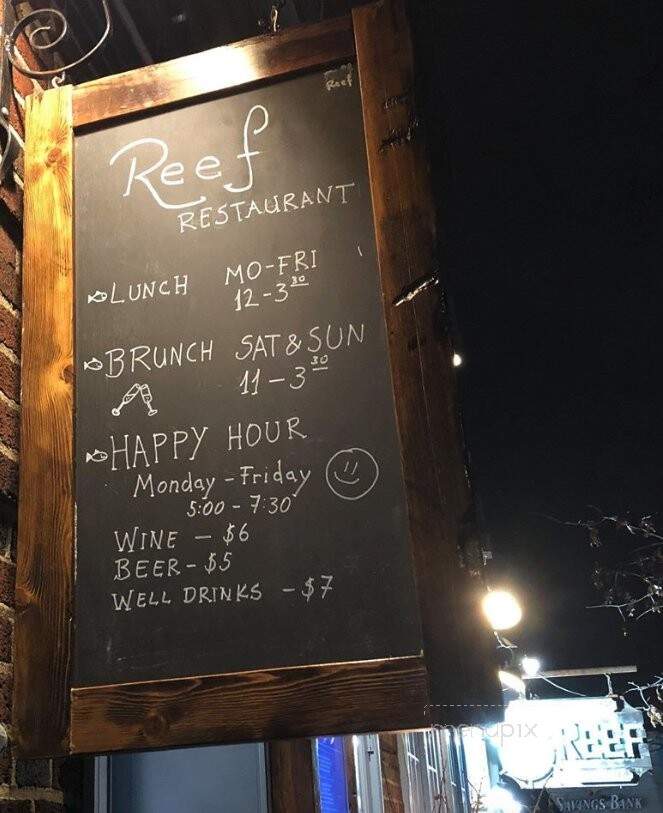 Reef
Reef
RESTAURANT
LUNCH MO-FRI
12-3³⁰
BRUNCH SAT & SUN
11-3³⁰
HAPPY HOUR
Monday-Friday
5:00 - 7:30
WINE - $6
BEER - $5
WELL DRINKS - $7
menupix
REEF
SAVINGS BANK